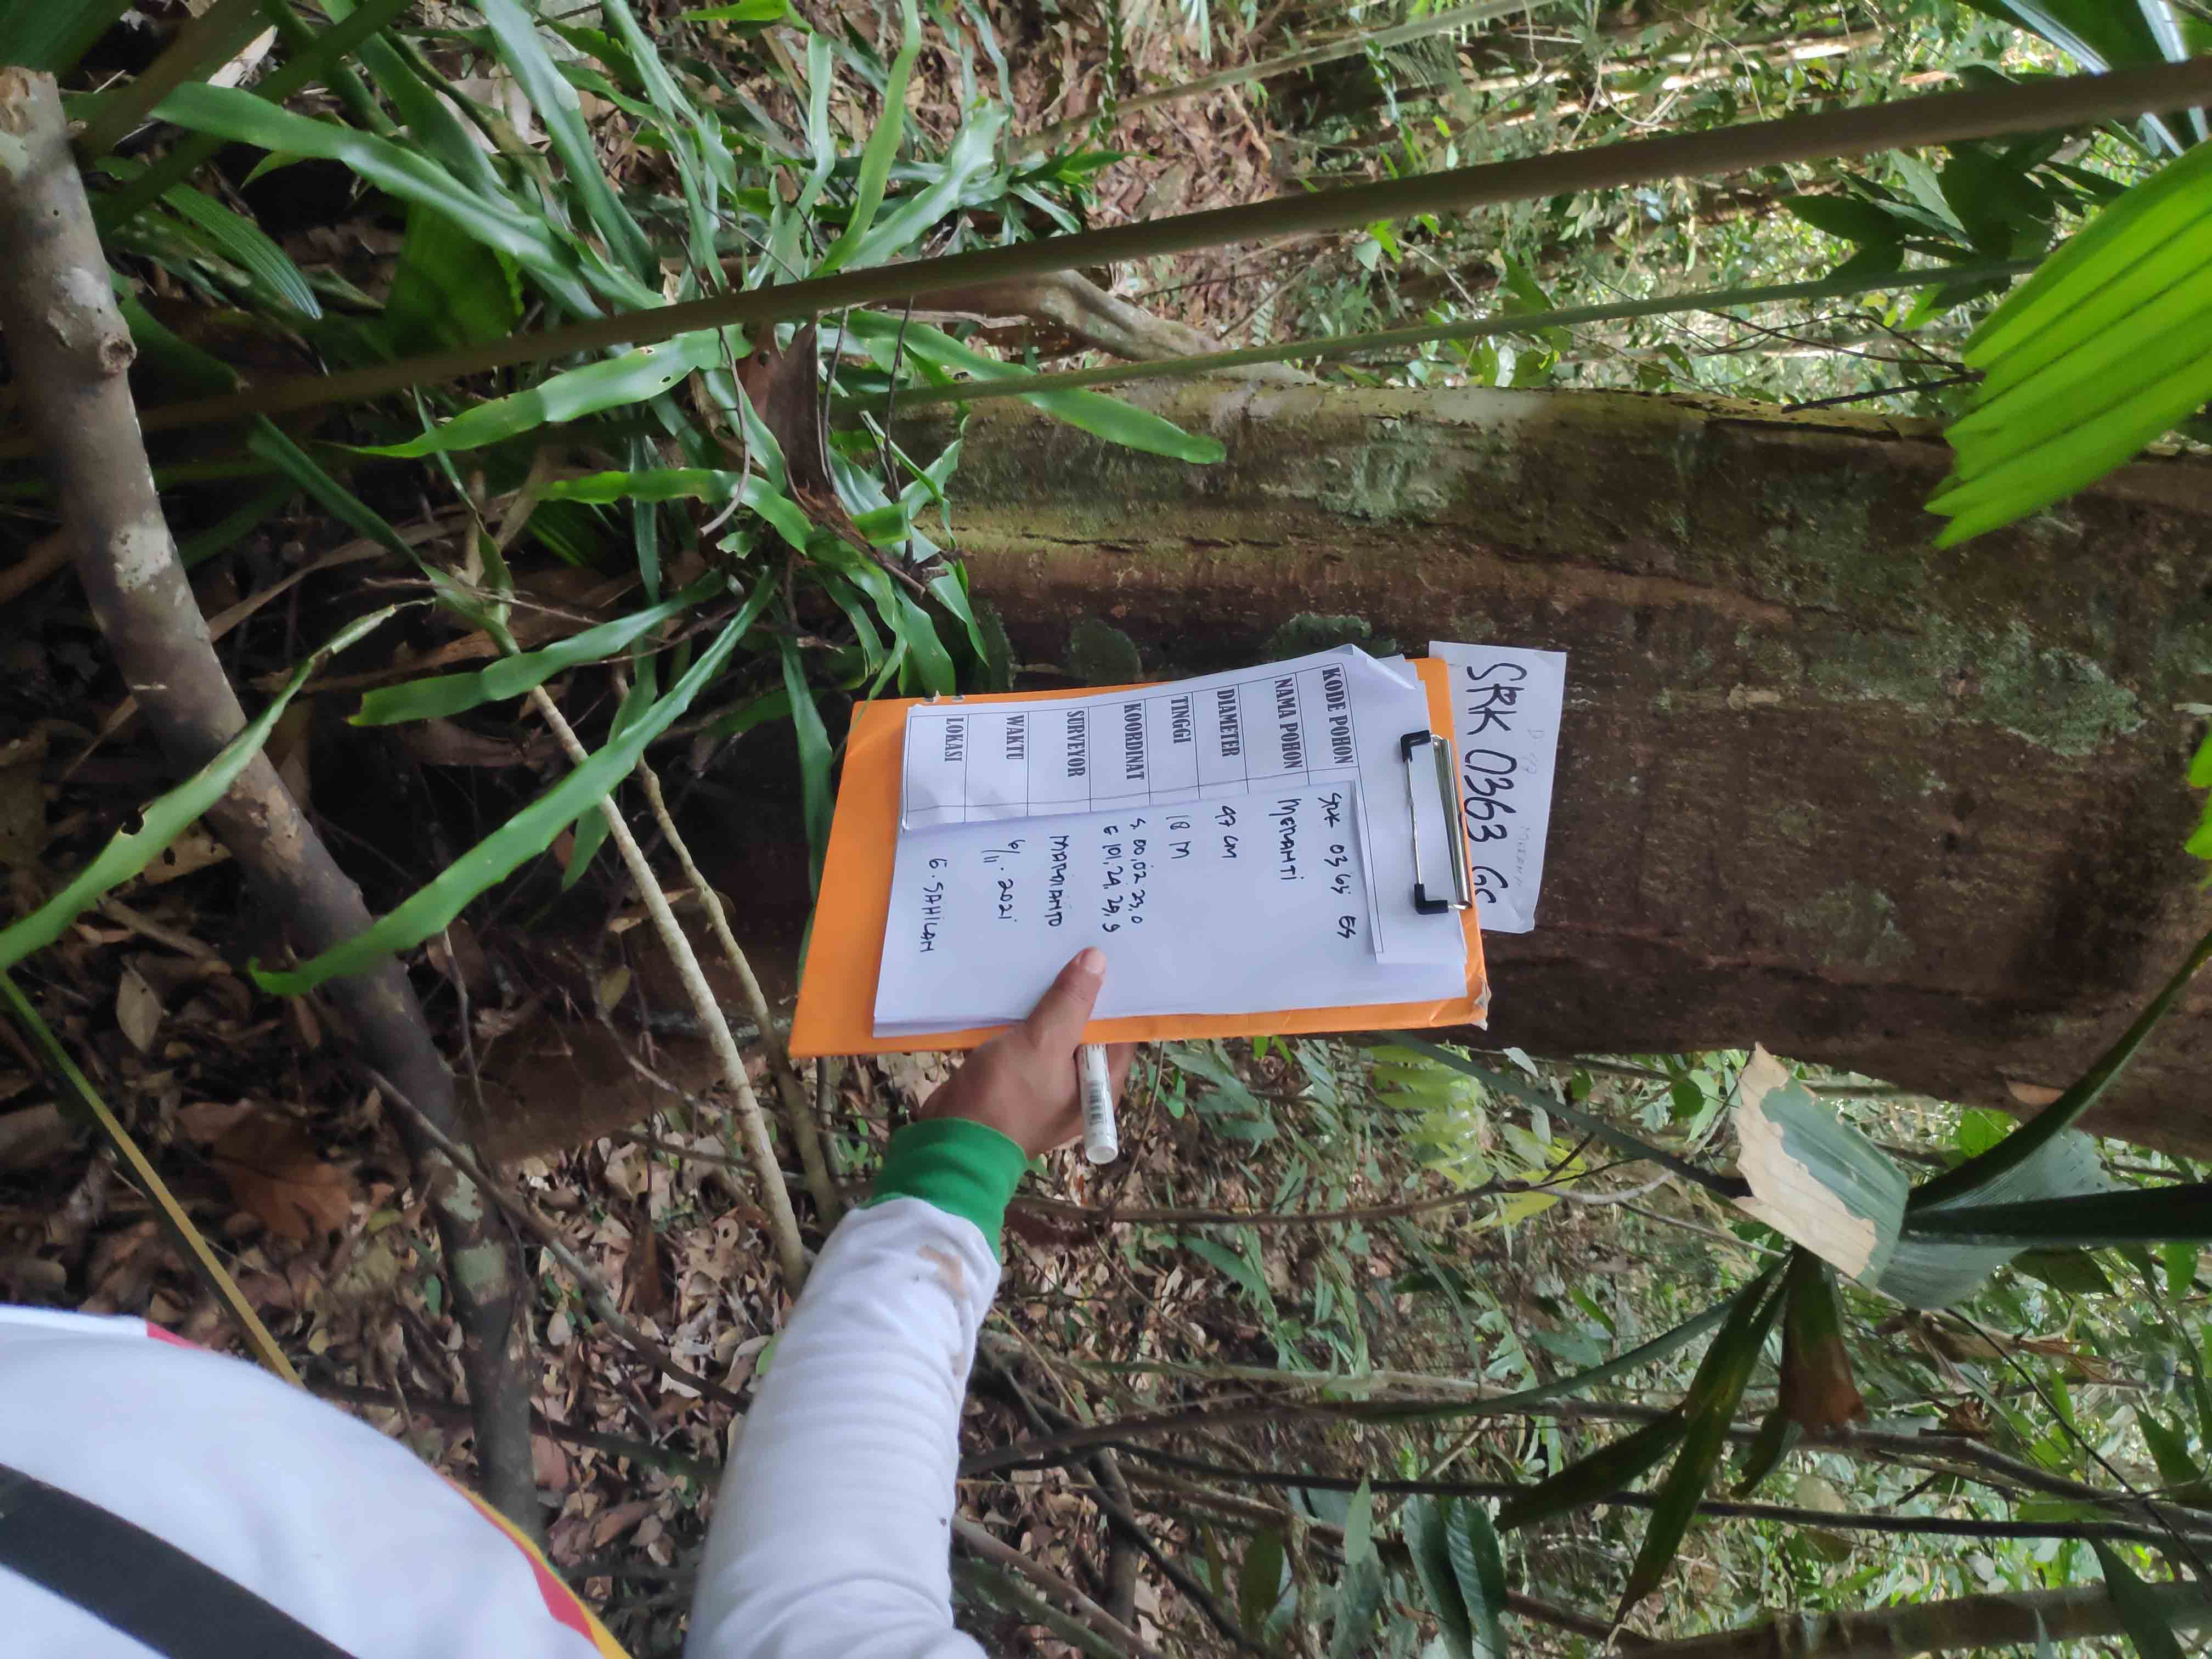 SRK 0363 GS
KODE POHON SRK 0363 ES
NAMA POHON MERANTI
DIAMETER 97 CM
TINGGI 18 M
KOORDINAT S 00,02 23,0
E 101,24, 29,9
SURVEYOR MARDIANTO
WAKTU 6/11.2021
LOKASI G.SAHILAN